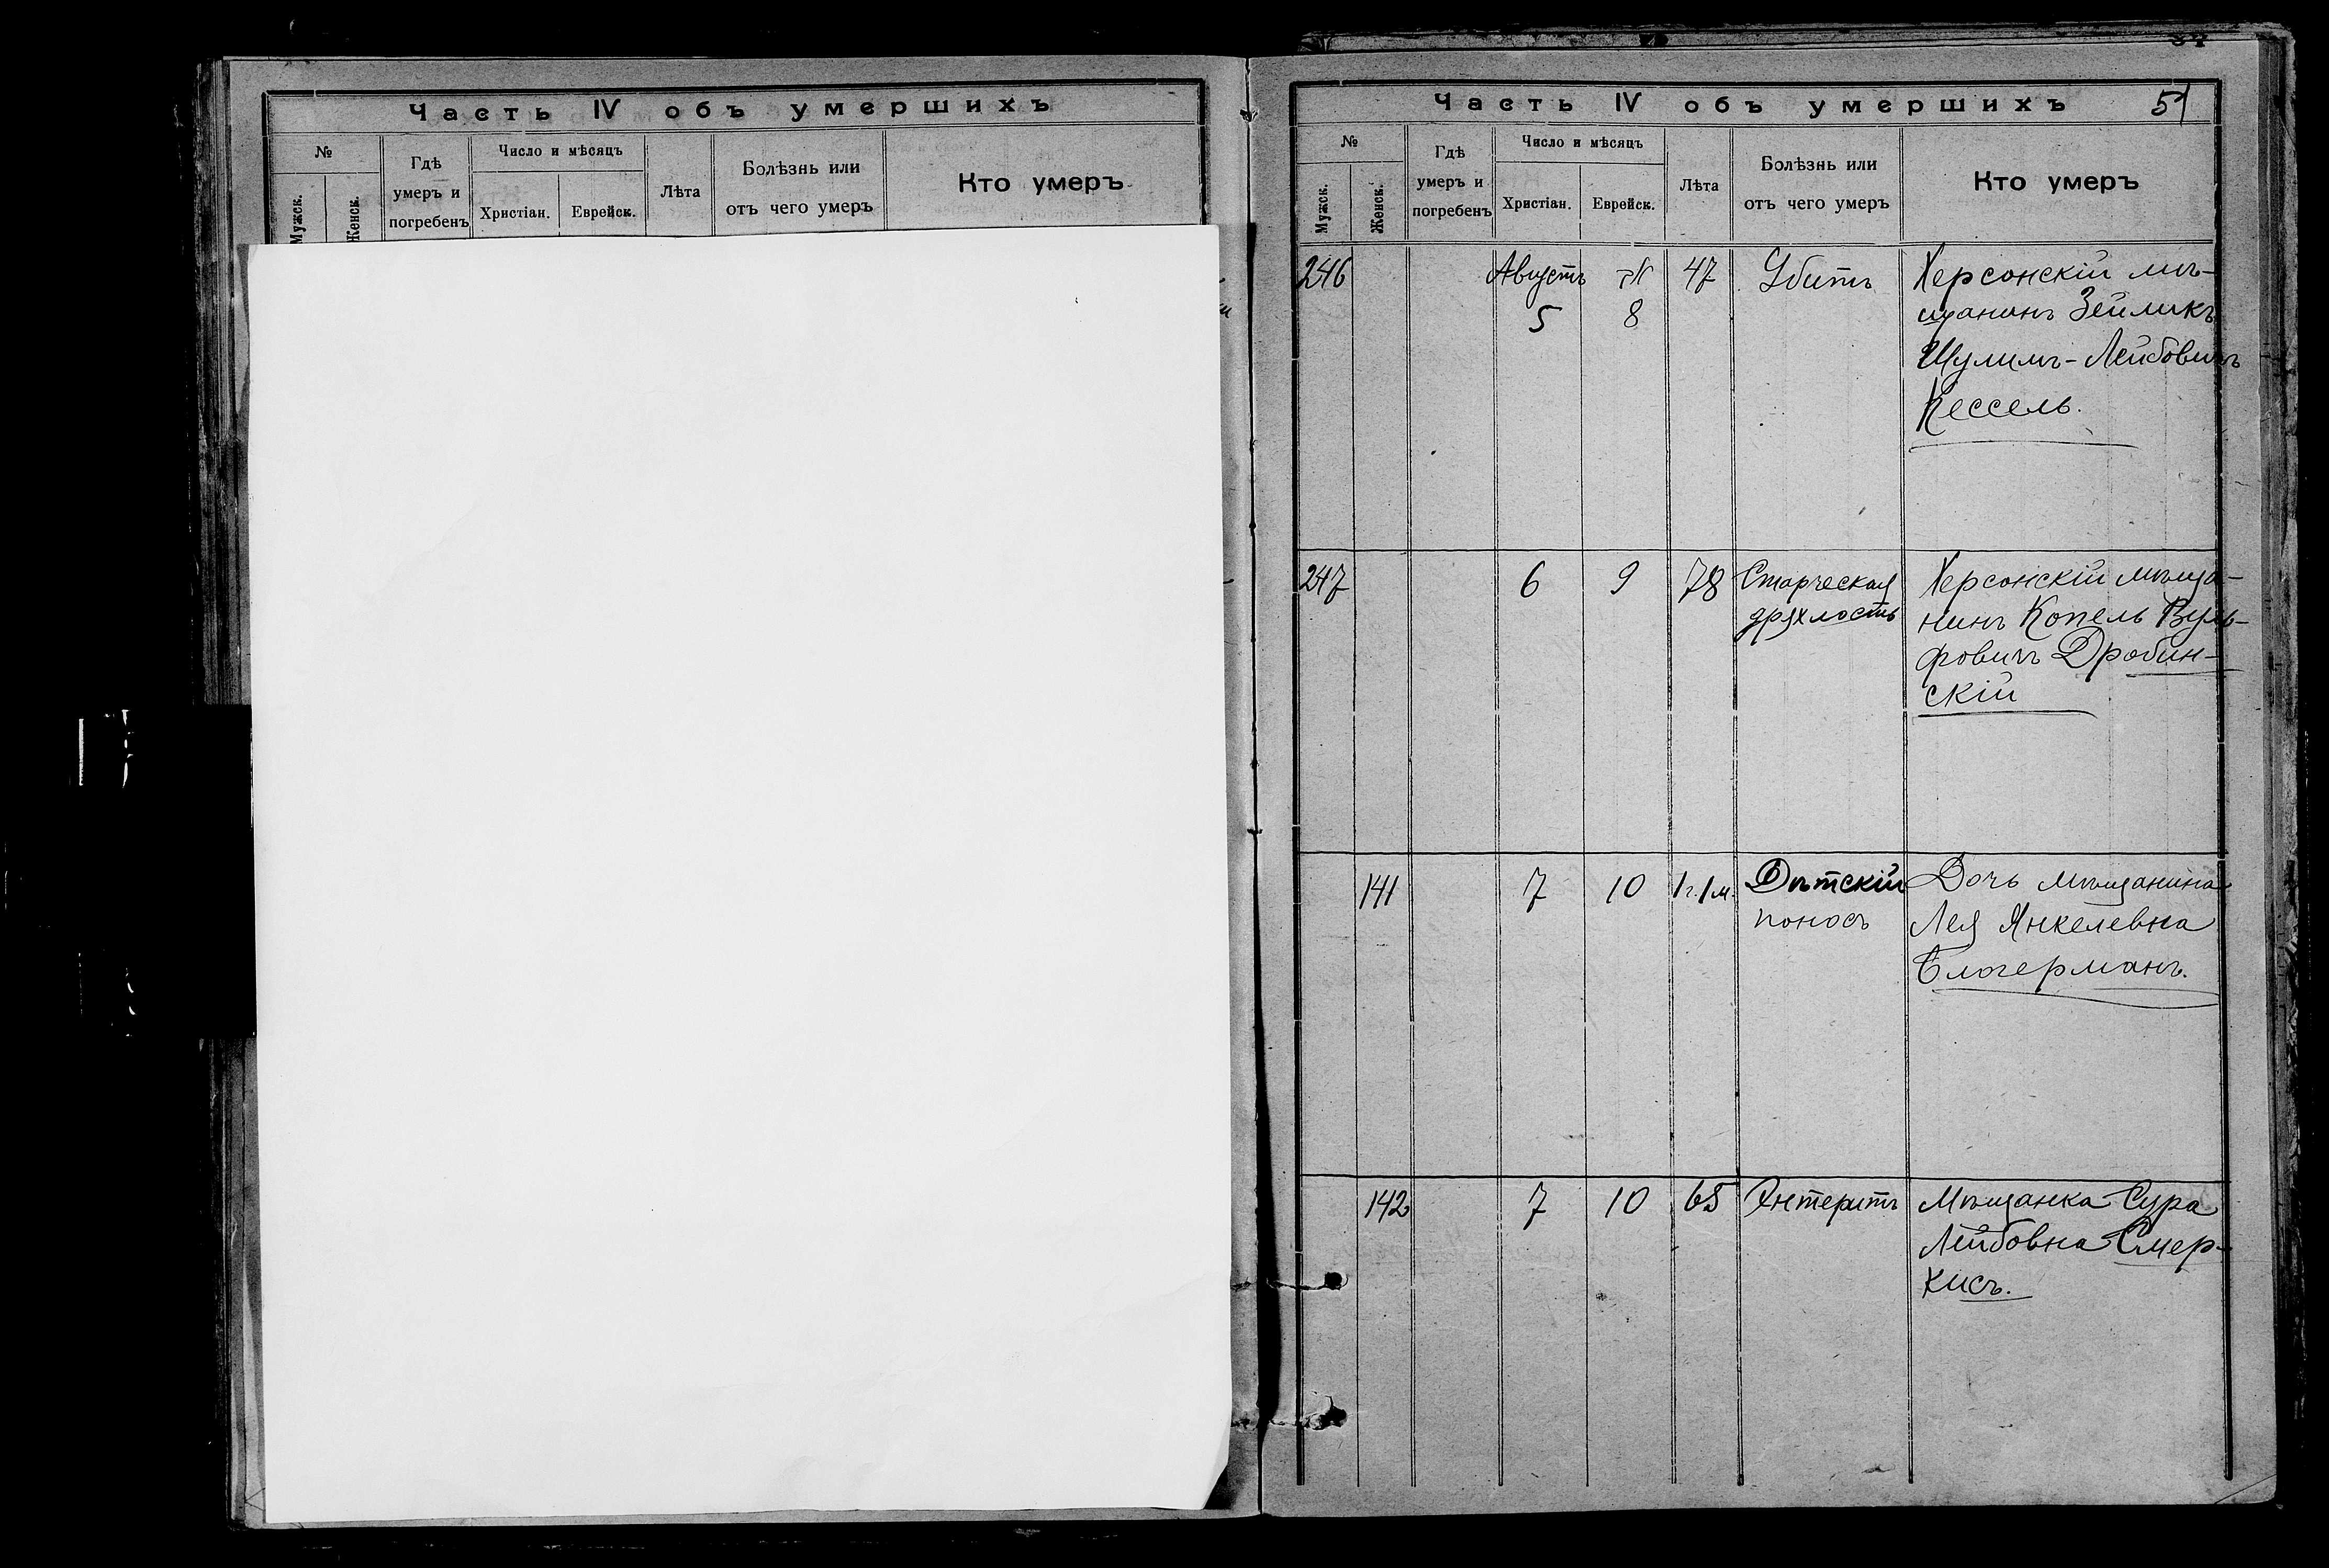 Часть IV объ умершихъ
№
Мужск.
Женск.
Гдѣ
умеръ и
погребенъ
Число и мѣсяцъ
Христіан.
Еврейск.
Лѣта
Болѣзнь или
отъ чего умеръ
Кто умеръ
Часть IV объ умершихъ
51
№
Мужск.
Женск.
Гдѣ
умеръ и
погребенъ
Число и мѣсяцъ
Христіан.
Еврейск.
Лѣта
Болѣзнь или
отъ чего умеръ
Кто умеръ
246
Августъ
5
אב
8
47
Убитъ
Херсонскій мѣ-
щанинъ Зейликъ
Шулимъ-Лейбовичъ
Кессель.
247
6
9
78
Старческая
дряхлость
Херсонскій мѣща-
нинъ Копель Вуль-
фовичъ Дробин-
скій
141
7
10
1 г. 1 м.
Дѣтскій
поносъ
Дочь мѣщанина
Лея Янкелевна
142
7
10
65
Энтеритъ
Мѣщанка Сура
Лейбовна Смер-
кисъ.